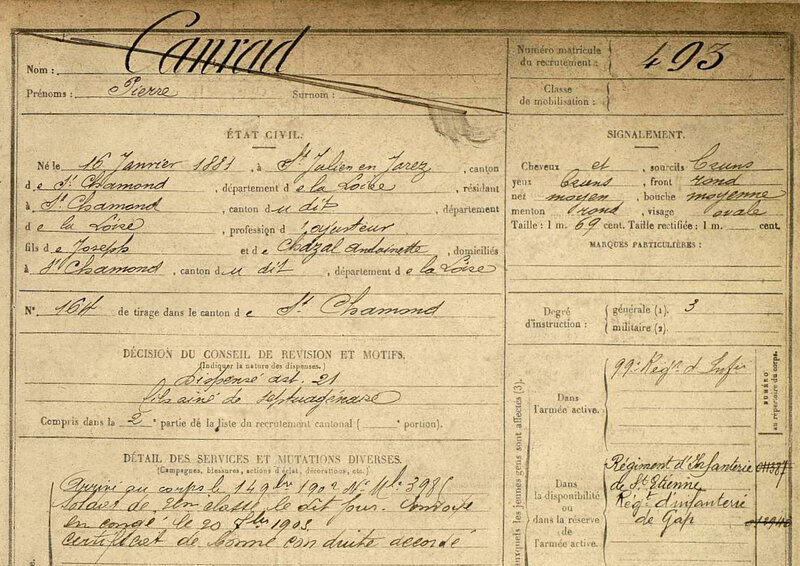 Nom : Canrad
Prénoms : Pierre Surnom :
Numéro matricule du recrutement : 493
Classe de mobilisation :
ÉTAT CIVIL.
Né le 16 Janvier 1881, à St Julien en Jarez, canton
de St Chamond, département de la Loire, résidant
à St Chamond, canton du dit, département
de la Loire, profession d'ajusteur
fils de Joseph et de Chazal Antoinette, domiciliés
à St Chamond, canton du dit, département de la Loire
N° 164 de tirage dans le canton de St Chamond
SIGNALEMENT.
Cheveux et sourcils bruns
yeux bruns, front rond
nez moyen, bouche moyenne
menton rond, visage ovale
Taille : 1 m. 69 cent. Taille rectifiée : 1 m. cent.
MARQUES PARTICULIÈRES :
Degré d'instruction : générale (1). 3
militaire (2).
DÉCISION DU CONSEIL DE REVISION ET MOTIFS.
(Indiquer la nature des dispenses.)
Dispensé art. 21
fils aîné de septuagénaire
Compris dans la 2e partie de la liste du recrutement cantonal ( portion).
DÉTAIL DES SERVICES ET MUTATIONS DIVERSES.
(Campagnes, blessures, actions d'éclat, décorations, etc.)
Arrivé au corps le 14 9bre 1902 N° Mle 3985
Soldat de 2me classe le dit jour. Envoyé
en congé le 20 7bre 1903
certificat de bonne conduite accordé
auxquels les jeunes gens sont affectés (3).
NUMÉRO au répertoire du corps.
Dans l'armée active. 99e Régt d'Infie
Dans la disponibilité ou dans la réserve de l'armée active.
Régiment d'Infanterie
de St Etienne
Régt d'infanterie
de Gap